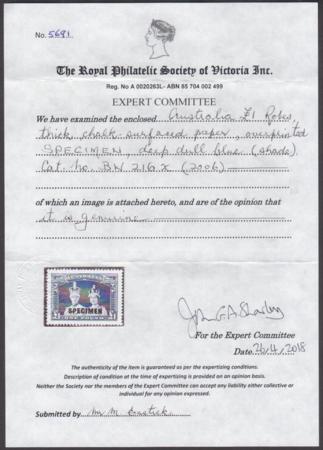 No. 5691
The Royal Philatelic Society of Victoria Inc.
Reg. No A 0020263L- ABN 85 704 002 499
EXPERT COMMITTEE
We have examined the enclosed Australia £1 Robes,
thick chalk-surfaced paper, overprinted
SPECIMEN, deep dull blue (shade)
Cat. No. BW 216x (2006)
of which an image is attached hereto, and are of the opinion that
it is genuine
SPECIMEN
For the Expert Committee
Date 26/4/2018
The authenticity of the item is guaranteed as per the expertizing conditions.
Description of condition at the time of expertizing is provided on an opinion basis.
Neither the Society nor the members of the Expert Committee can accept any liability either collective
or individual for any opinion expressed.
Submitted by Mr M